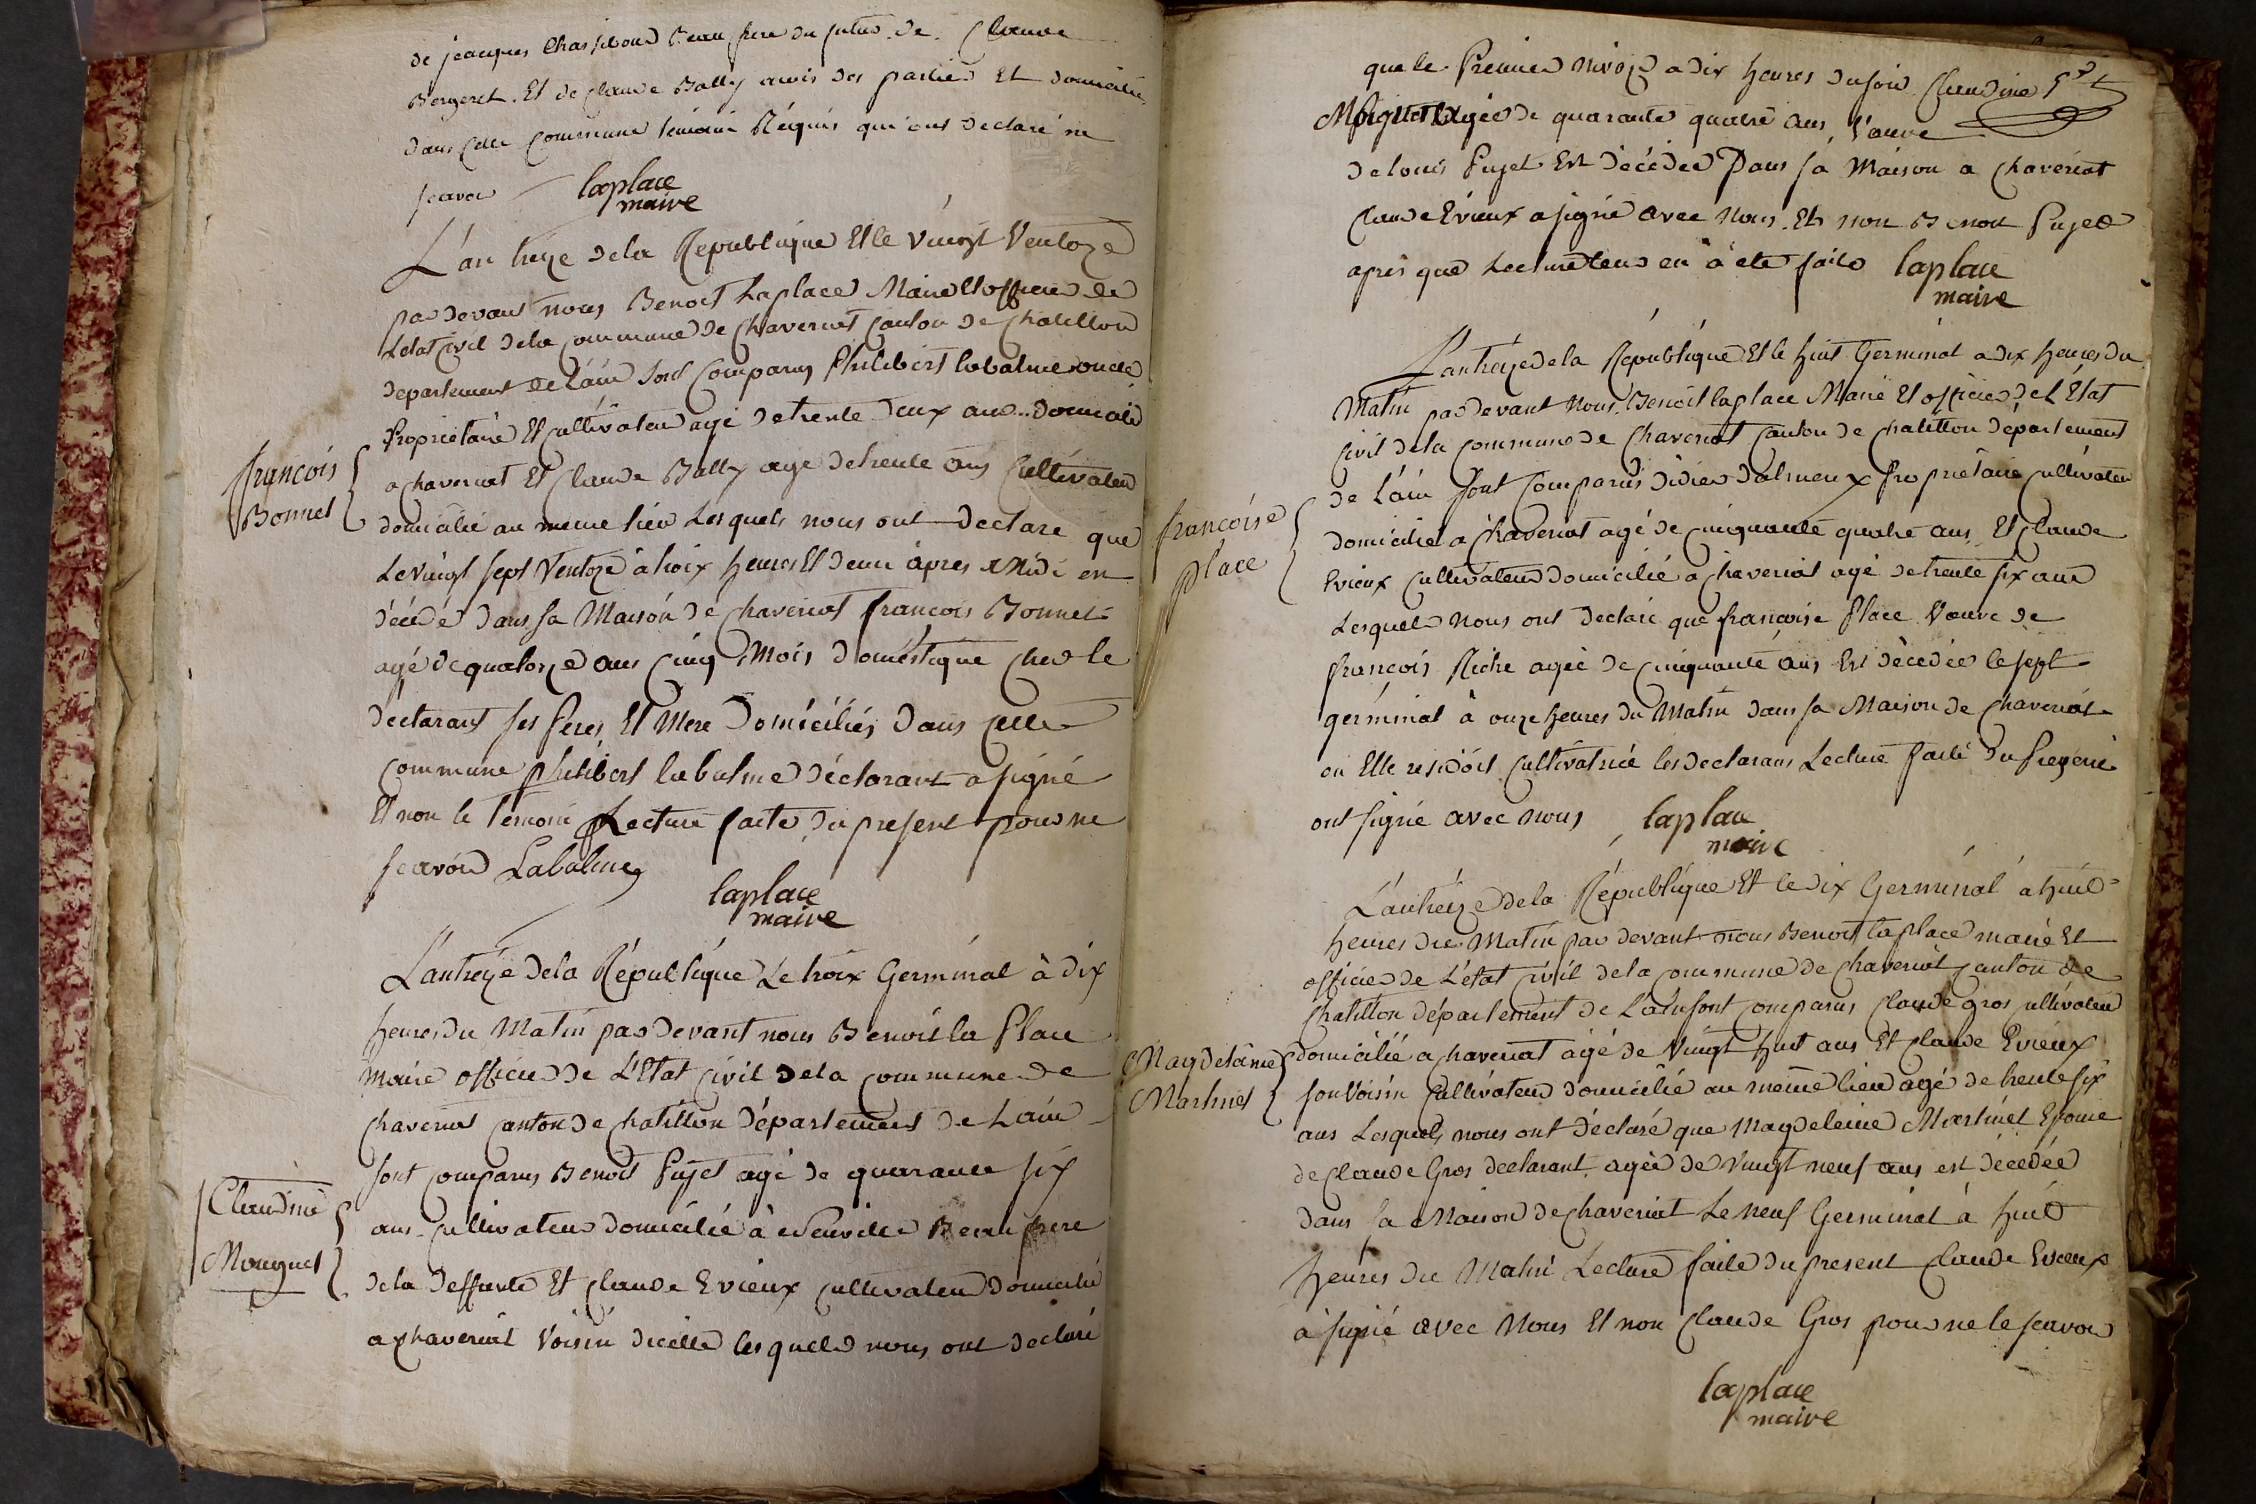 de jeacques Chassiboud beau frere du futur. de. Claude
Bergeret. Et de Claude Bally amis des parties Et domicilié
dans cette commune temoin Réquis qui ont declaré ne
scavoir laplace
maire
L'an treize dela Republique Et le vingt Ventoze
par devant nous Benoit Laplace Maire Et officier de
Letat Civil dela Commune de Chaveriat Canton de Chatillon
departement de L'ain sont Comparus Philibert labalme oncle
Proprietaire Et Cultivateur agé de trente deux ans.. domicilié
a Chaveriat Et Claude Bally age de trente ans Cultivateur
domicilié au meme lieu Lesquels nous ont declaré que
Le vingt sept Ventoze à troix heures Et demi après Midi en
décédé dans sa Maison de Chaveriat francois Bonnet
agé de quatorze ans Cinq Mois domestique Chez le
déclarant ses Peres Et Mere Domiciliés dans cette
Commune philibert labalme déclarant a signé
Et non le temoin Lecture faite du present pour ne
scavoir Labalme
laplace
maire
françois
Bonnet
L'an treize dela République Le troix Germinal à dix
heures du Matin par devant nous Benoit la Place
Maire officier de L'Etat Civil dela Commune de
Chaveriat Canton de Chatillon Département de Lain
sont Comparus Benoit Pujet agé de quarante six
ans Cultivateur domicilié à Neuville Beau frere
dela deffunte Et Claude Evieux Cultivateur domicilié
a Chaveriat Voisin dicelle lesquels nous ont declaré
Claudine
Monguet
que le Premier nivoze a dix heures du soir Claudine
agée de quarante quatre ans, Veuve
de louis Pujet Est décédée Dans sa Maison a Chaveriat
Claude Evieux a signé avec Nous. Et non Benoit Pujet
apres que Lecture leur en à été faite laplace
maire
L'an treize dela République Et le huit Germinal a dix heures du
Matin par devant Nous Benoit laplace Maire Et officier de L'État
Civil dela Commune de Chaveriat Canton de Chatillon département
de L'ain sont Comparus didier dalmeux Proprietaire Cultivateur
domicilié a Chaveriat agé de Cinquante quatre ans Et Claude
Evieux Cultivateur domicilié a Chaveriat agé de trente six ans
Lesquels Nous ont declaré que françoise Place Veuve de
françois Riche agée de Cinquante ans Est décedée le sept
germinal à onze heures du Matin dans sa Maison de Chaveriat
ou Elle residoit Cultivatrice les declarans Lecture faite du present
ont signé avec nous laplace
maire
francoise
place
L'an treize dela République Et le dix Germinal a huit
heures du Matin par devant nous Benoit laplace maire Et
officier de L'état Civil dela Commune de Chaveriat Canton de
Chatillon département de L'ain sont Comparus Claude gros Cultivateur
domicilié a Chaveriat agé de Vingt huit ans Et Claude Evieux
son Voisin Cultivateur domicilié au même lieu agé de trente six
ans Lesquels nous ont déclaré que Magdeleine Martinet Epouse
de Claude Gros declarant agée de Vingt neuf ans est décédée
dans sa Maison de Chaveriat Le Neuf Germinal à huit
heures du Matin Lecture faite du present Claude Evieux
à signé avec Nous Et non Claude Gros pour ne le scavoir
laplace
maire
Magdelaine
Martinet